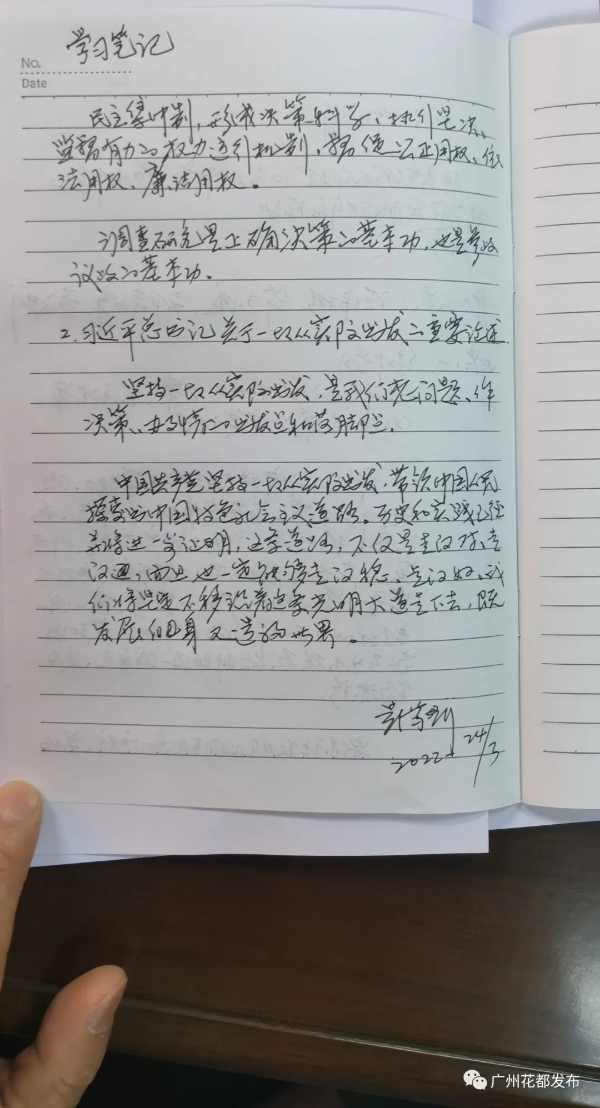 No.
学习笔记
Date
民主集中制,形成决策科学、执行坚决、
监督有力的权力运行机制,督促公正用权、依
法用权、廉洁用权。
调查研究是正确决策的基本功,也是参政
议政的基本功。
2.习近平总书记关于一切从实际出发的重要论述
坚持一切从实际出发,是我们想问题、作
决策、办事情的出发点和落脚点。
中国共产党坚持一切从实际出发,带领中国人民
探索出中国特色社会主义道路。历史和实践已经
并将进一步证明,这条道路,不仅走得对、走
得通,而且也一定能够走得稳、走得好。我
们将坚定不移沿着这条光明大道走下去,既
发展自身又造福世界。
2022
24/3
广州花都发布